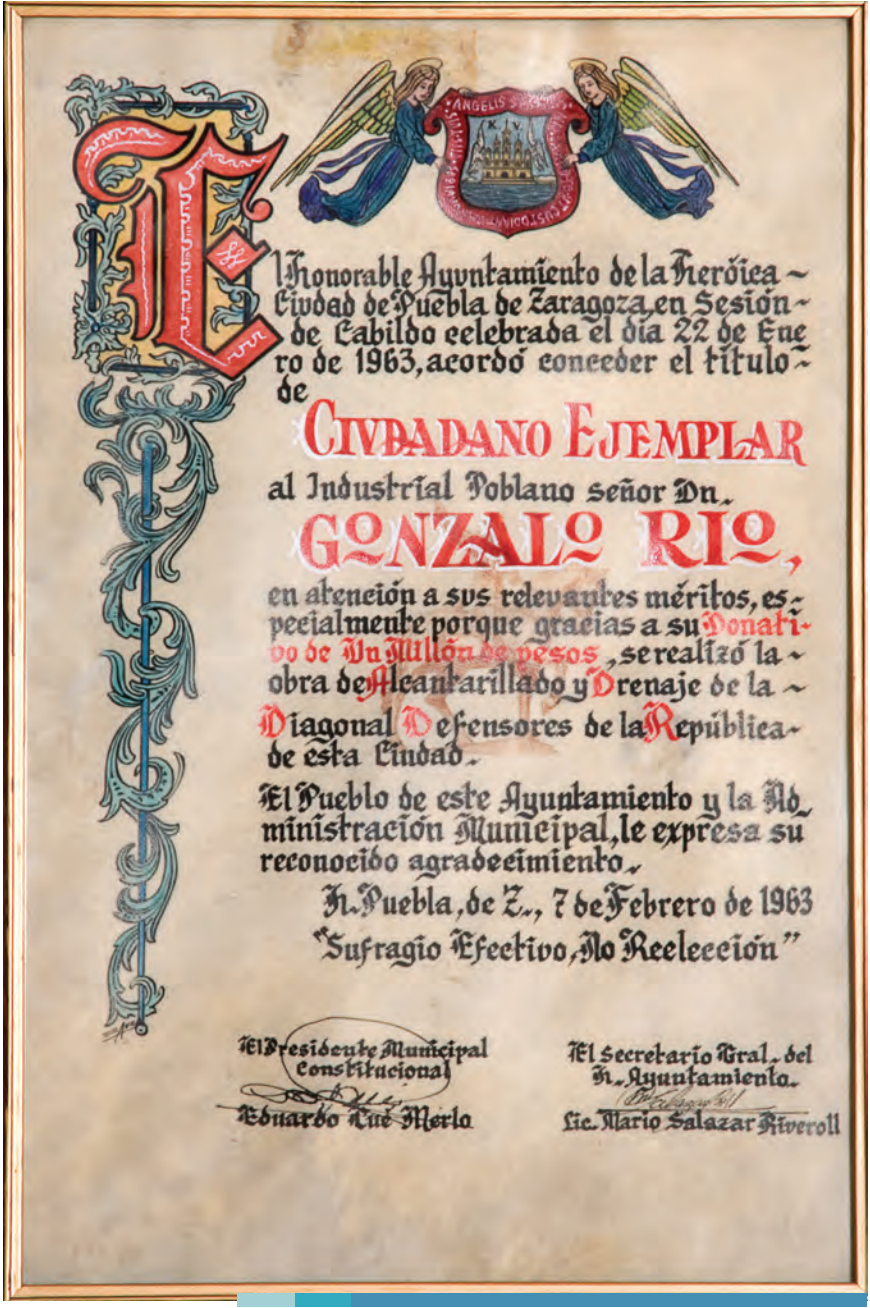 ANGELIS
K V
CUSTODIANT
El Honorable Ayuntamiento de la Heróica ~
Ciudad de Puebla de Zaragoza, en Sesión ~
de Cabildo celebrada el día 22 de Ene
ro de 1963, acordó conceder el título ~
de
CIVDADANO EJEMPLAR
al Industrial Poblano señor Dn.
GONZALO RIO,
en atención a sus relevantes méritos, es-
pecialmente porque gracias a su Donati-
vo de Un Millón de pesos, se realizó la ~
obra de Alcantarillado y Drenaje de la ~
Diagonal Defensores de la República ~
de esta Ciudad.
El Pueblo de este Ayuntamiento y la Ad-
ministración Municipal, le expresa su
reconocido agradecimiento.
H. Puebla, de Z., 7 de Febrero de 1963
"Sufragio Efectivo, No Reelección"
El Presidente Municipal
Constitucional
Eduardo Cué Merlo
El Secretario Gral. del
H. Ayuntamiento.
Lic. Mario Salazar Riveroll